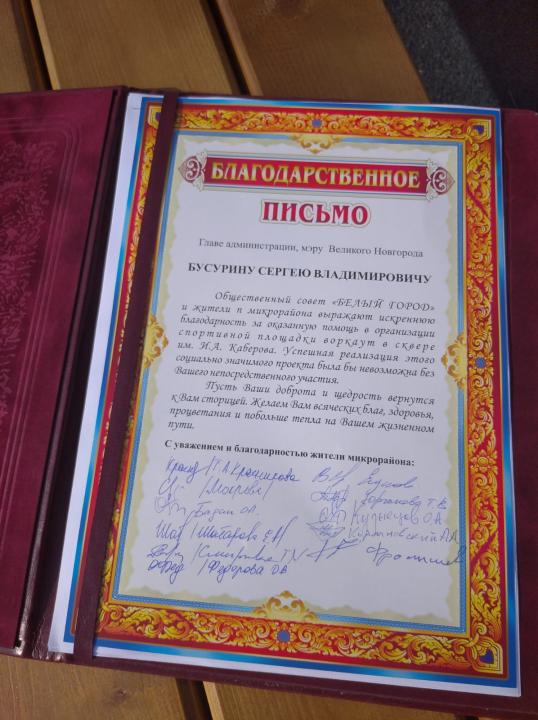 БЛАГОДАРСТВЕННОЕ
ПИСЬМО
Главе администрации, мэру Великого Новгорода
БУСУРИНУ СЕРГЕЮ ВЛАДИМИРОВИЧУ
Общественный совет «БЕЛЫЙ ГОРОД»
и жители п микрорайона выражают искреннюю
благодарность за оказанную помощь в организации
спортивной площадки воркаут в сквере
им. И.А. Каберова. Успешная реализация этого
социально значимого проекта была бы невозможна без
Вашего непосредственного участия.
Пусть Ваши доброта и щедрость вернутся
к Вам сторицей. Желаем Вам всяческих благ, здоровья,
процветания и побольше тепла на Вашем жизненном
пути.
С уважением и благодарностью жители микрорайона:
Кузнецов О.А.
/Федорова О В